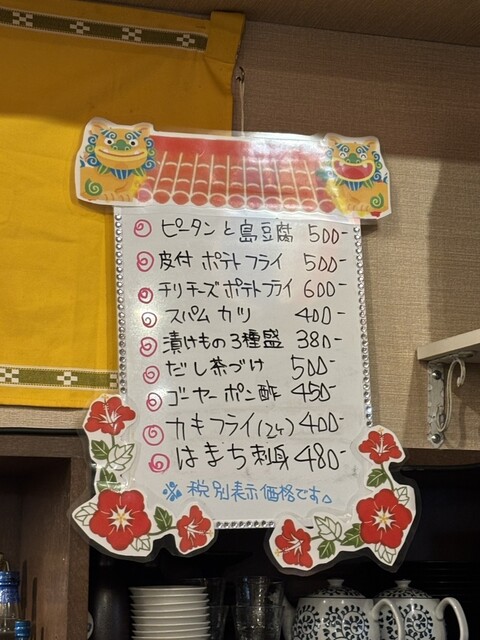 ピータンと島豆腐 500-
皮付ポテトフライ 500-
チリチーズポテトフライ 600-
スパムカツ 400-
漬けもの3種盛 380-
だし茶づけ 500-
ゴーヤーポン酢 450-
カキフライ(2ケ) 400-
はまち刺身 480-
※税別表示価格です。